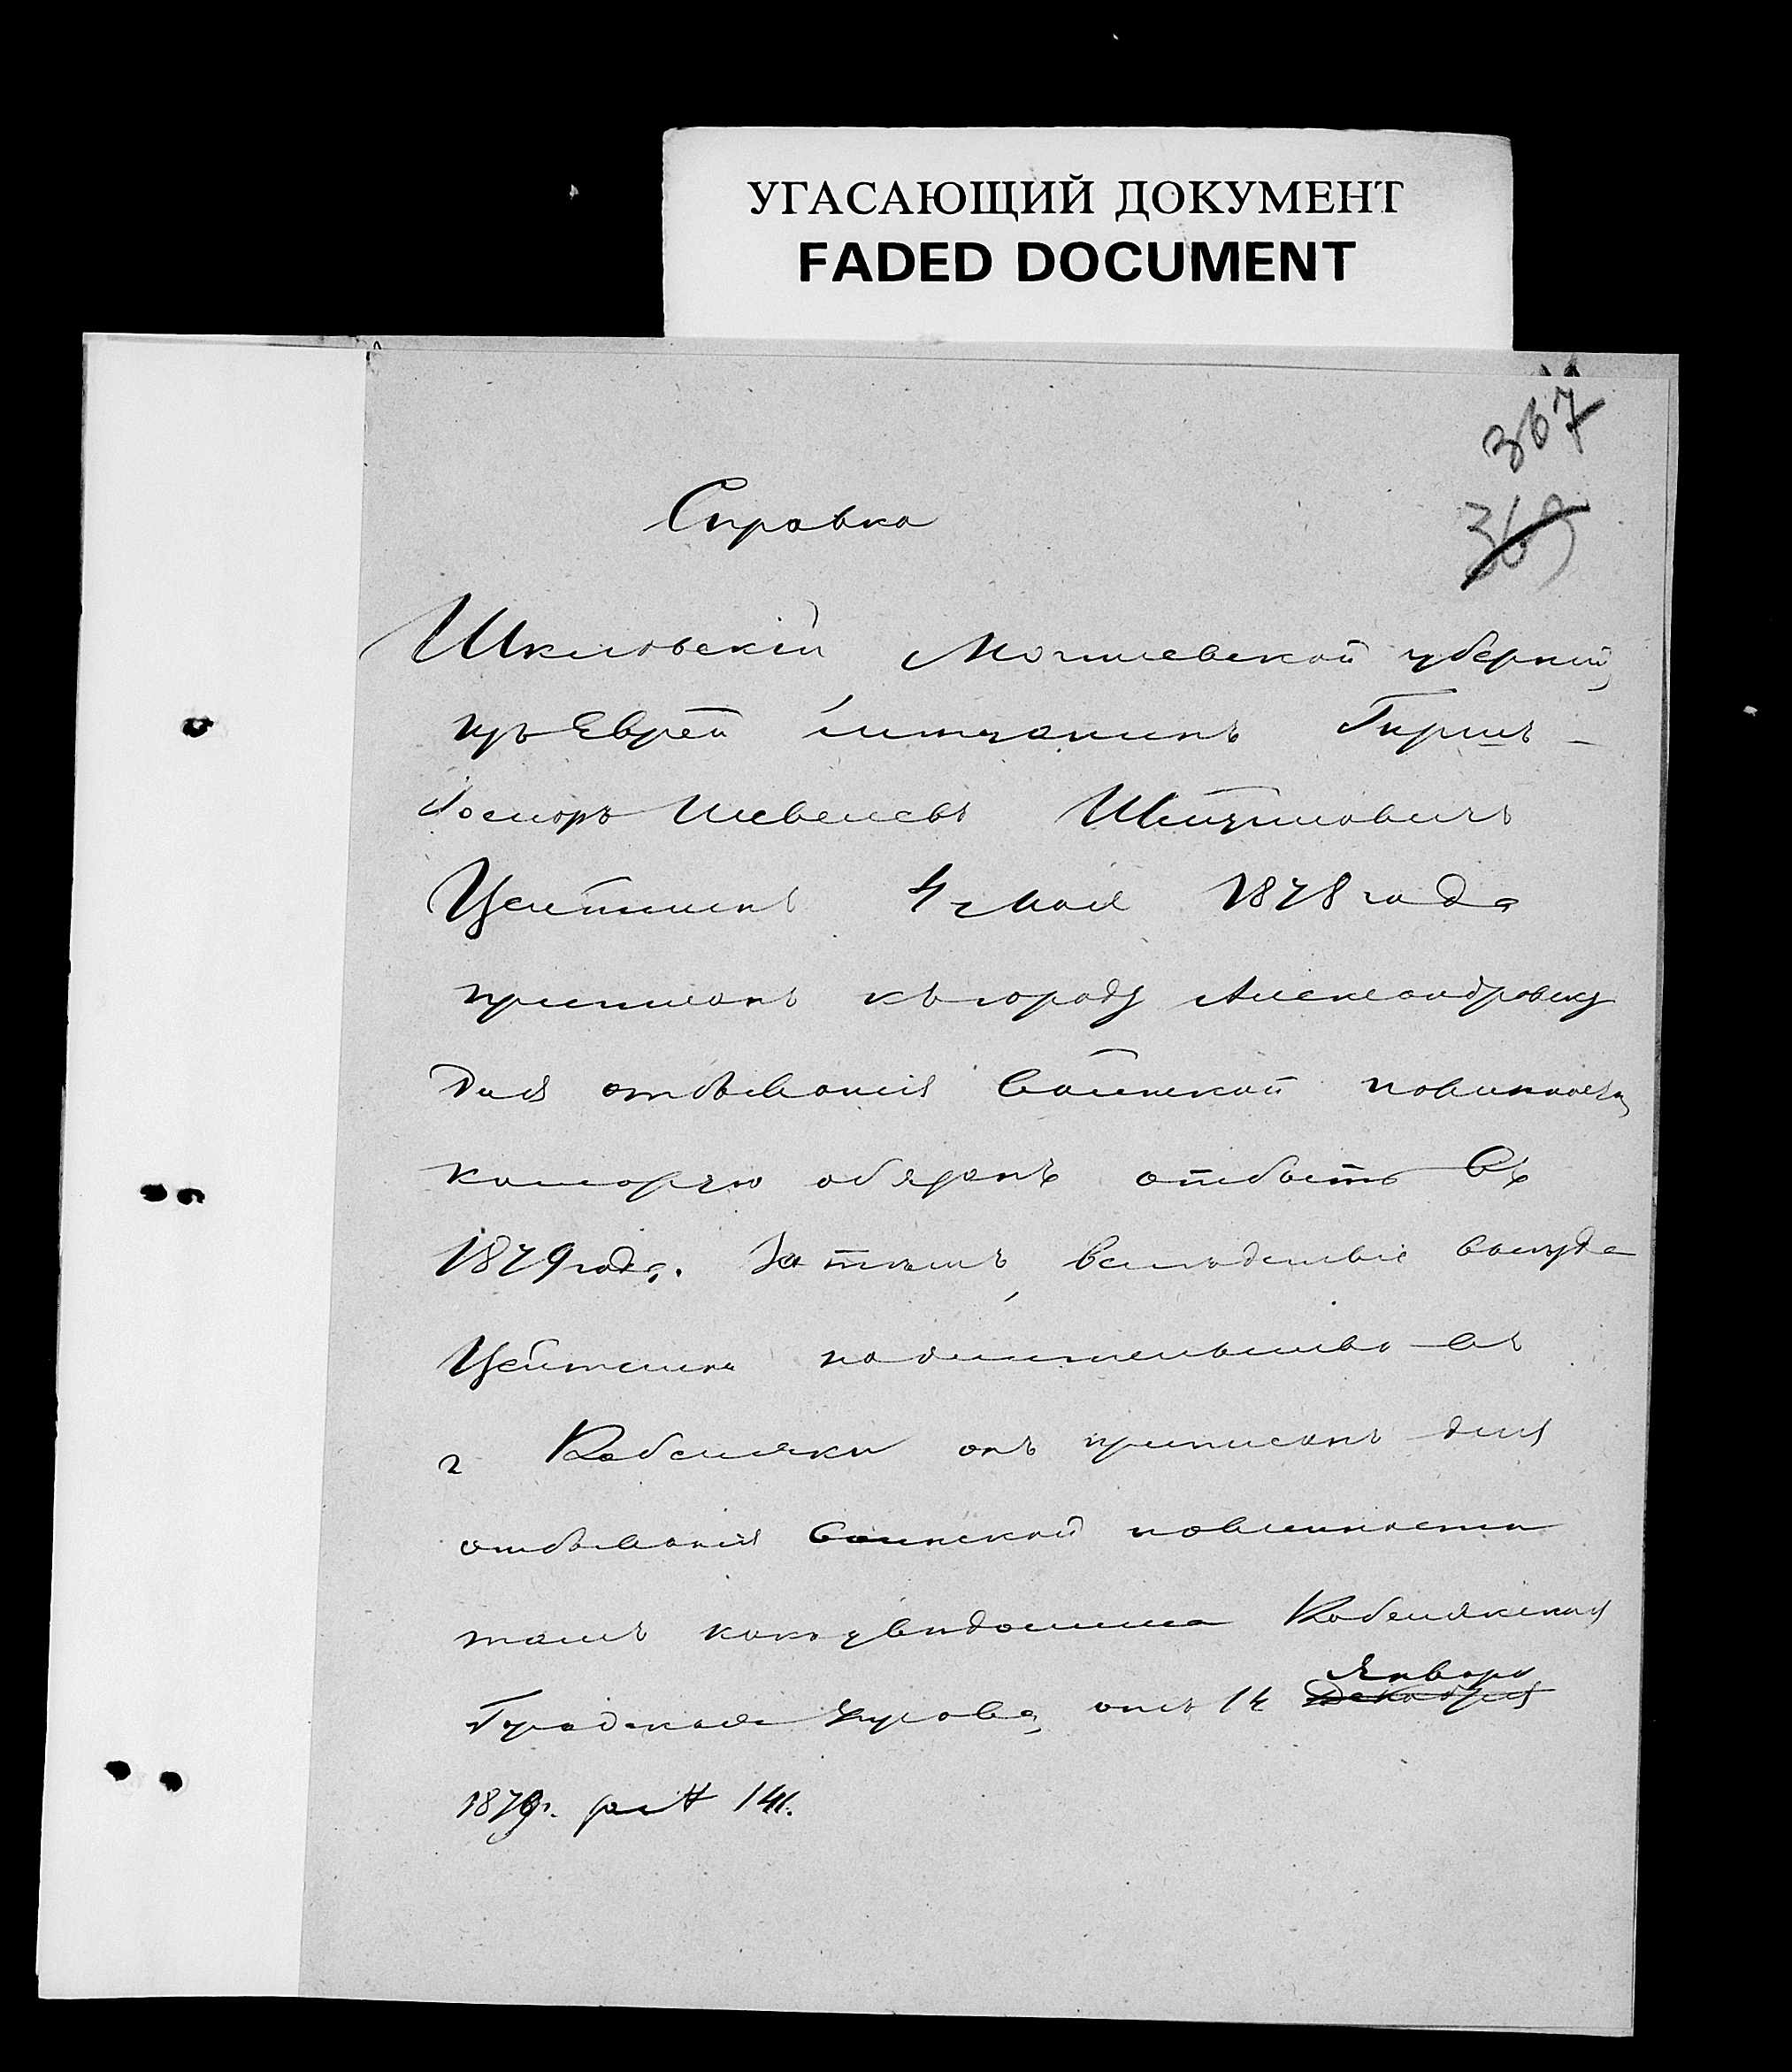 УГАСАЮЩИЙ ДОКУМЕНТ
FADED DOCUMENT
367
369
Справка
Шкловскій Могилевской губерніи,
изъ Еврей мѣщанинъ Гиршъ-
Іосифъ Шевелевъ
Цейтлинъ 4 Мая 1878 года
приписанъ къ городу Александровску
для отбыванія воинской повинности,
которую обязанъ отбыть въ
1879 году. Затѣмъ, вслѣдствіе выезда
Цейтлина на жительство въ
г Кобеляки онъ приписанъ для
отбыванія воинской повинности
тамъ какъ увѣдомила Кобелякская
Января
Городская Управа, отъ 14 Декабря
1879г. за № 141.